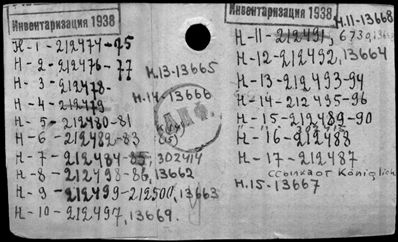 Инвентаризация 1938
Н - 1 - 212474 - 75
Н - 2 - 212476 - 77
Н - 3 - 212478 -
Н - 4 - 212479
Н - 5 - 212480 - 81
Н - 6 - 212482 - 83
Н - 7 - 212484 - 85, 302414
Н - 8 - 212498 - 86, 13662
Н - 9 - 212499 - 212500, 13663
Н - 10 - 212497, 13669.
Н.13-13665
Н.14-13666
Инвентаризация 1938
Н.11-13668
Н-11-212491,
Н-12-212492, 13664
Н-13-212493-94
Н-14-212495-96
Н-15-212489-90
Н-16-212488
Н-17-212487
ссылка от Königlich
Н.15-13667